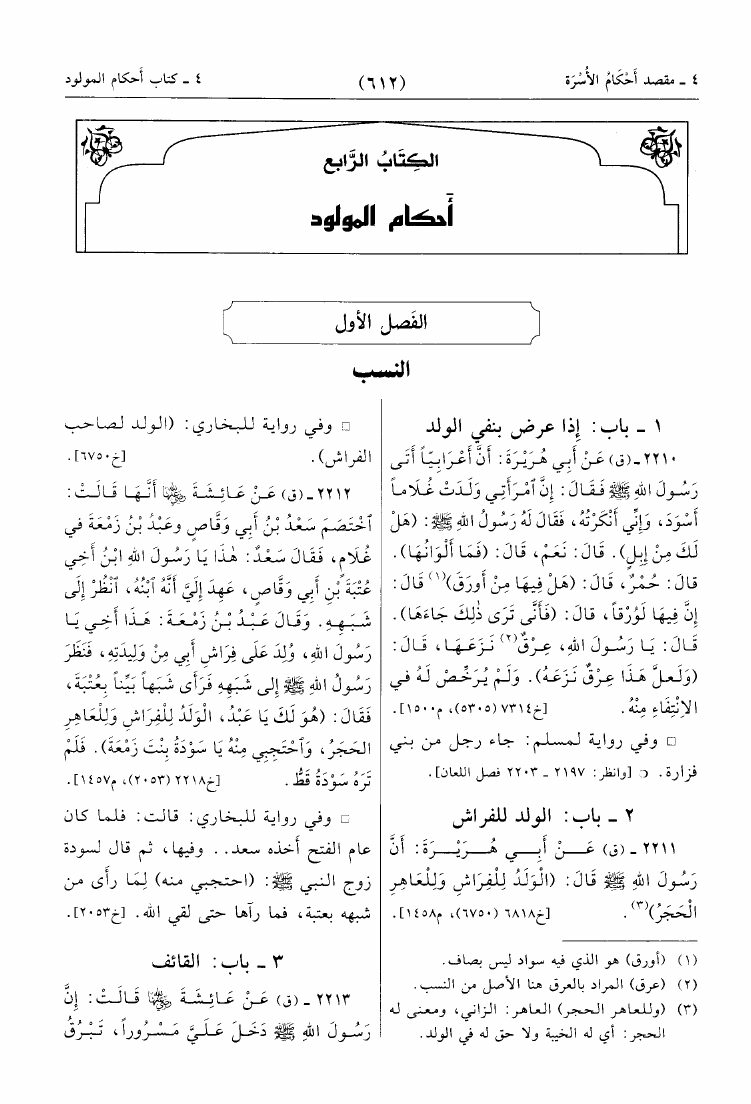 ٤ ـ مقصد أَحْكَامُ الأُسْرَة
(٦١٢)
٤ ـ كتاب أحكام المولود
الكِتَابُ الرَّابع
أَحكام المولود
الفَصل الأول
النسب
١ ـ باب: إذا عرض بنفي الولد
٢٢١٠ ـ (ق) عَنْ أَبِي هُرَيْرَةَ: أَنَّ أَعْرَابِيّاً أَتَى
رَسُولَ اللهِ ﷺ فَقَالَ: إِنَّ ٱمْرَأَتِي وَلَدَتْ غُلَاماً
أَسْوَدَ، وَإِنِّي أَنْكَرْتُهُ، فَقَالَ لَهُ رَسُولُ اللهِ ﷺ: (هَلْ
لَكَ مِنْ إِبِلٍ). قَالَ: نَعَمْ، قَالَ: (فَمَا أَلْوَانُهَا).
قالَ: حُمْرٌ، قَالَ: (هَلْ فِيهَا مِنْ أَورَقَ)(١) قَالَ:
إِنَّ فِيهَا لَوُرْقاً، قالَ: (فَأَنَّى تَرَى ذٰلِكَ جَاءَهَا).
قَالَ: يَا رَسُولَ اللهِ، عِرْقٌ(٢) نَزَعَهَا، قَالَ:
(وَلَعلَّ هَذَا عِرْقٌ نَزَعَهُ). وَلَمْ يُرَخِّصْ لَهُ في
الِانْتِفَاءِ مِنْهُ. [خ٧٣١٤ (٥٣٠٥)، م١٥٠٠].
□ وفي رواية لمسلم: جاء رجل من بني
فزارة. ○ [وانظر: ٢١٩٧ ـ ٢٢٠٣ فصل اللعان].
٢ ـ باب: الولد للفراش
٢٢١١ ـ (ق) عَـنْ أَبِـي هُـرَيْـرَةَ: أَنَّ
رَسُولَ اللهِ ﷺ قَالَ: (الْوَلَدُ لِلْفِرَاشِ وَلِلْعَاهِرِ
الْحَجَرُ)(٣). [خ٦٨١٨ (٦٧٥٠)، م١٤٥٨].
(١) (أورق) هو الذي فيه سواد ليس بصاف.
(٢) (عرق) المراد بالعرق هنا الأصل من النسب.
(٣) (وللعاهر الحجر) العاهر: الزاني، ومعنى له
الحجر: أي له الخيبة ولا حق له في الولد.
□ وفي رواية للبخاري: (الولد لصاحب
الفراش). [خ٦٧٥٠].
٢٢١٢ ـ (ق) عَنْ عَائِشَةَ رضي الله عنها أَنَّهَا قَالَتْ:
ٱخْتَصَمَ سَعْدُ بْنُ أَبِي وَقَّاصٍ وعَبْدُ بْنُ زَمْعَةَ في
غُلَامٍ، فَقَالَ سَعْدٌ: هٰذا يَا رَسُولَ اللهِ ابْنُ أَخِي
عُتْبَةَ بْنِ أَبِي وَقَّاصٍ، عَهِدَ إِلَيَّ أَنَّهُ ٱبْنُهُ، ٱنْظُرْ إِلَى
شَبَهِهِ. وَقَالَ عَبْدُ بْنُ زَمْعَةَ: هَذَا أَخِي يَا
رَسُولَ اللهِ، وُلِدَ عَلَى فِرَاشِ أَبِي مِنْ وَلِيدَتِهِ، فَنَظَرَ
رَسُولُ اللهِ ﷺ إِلى شَبَهِهِ فَرَأَى شَبَهاً بَيِّناً بِعُتْبَةَ،
فَقَالَ: (هُوَ لَكَ يَا عَبْدُ، الْوَلَدُ لِلْفِرَاشِ وَلِلْعَاهِرِ
الحَجَرُ، وَٱحْتَجِبِي مِنْهُ يَا سَوْدَةُ بِنْتَ زَمْعَةَ). فَلَمْ
تَرَهُ سَوْدَةُ قَطُّ. [خ٢٢١٨ (٢٠٥٣)، م١٤٥٧].
□ وفي رواية للبخاري: قالت: فلما كان
عام الفتح أخذه سعد.. وفيها، ثم قال لسودة
زوج النبي ﷺ: (احتجبي منه) لِمَا رأى من
شبهه بعتبة، فما رآها حتى لقي الله. [خ٢٠٥٣].
٣ ـ باب: القائف
٢٢١٣ ـ (ق) عَنْ عَائِشَةَ رضي الله عنها قَالَتْ: إِنَّ
رَسُولَ اللهِ ﷺ دَخَلَ عَلَيَّ مَسْرُوراً، تَبْرُقُ